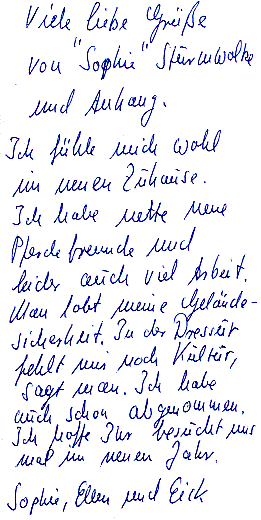 Viele liebe Grüße
von "Sophie" Sturmwolke
und Anhang.
Ich fühle mich wohl
im neuen Zuhause.
Ich habe nette neue
Pferdefreunde und
leider auch viel Arbeit.
Man lobt meine Gelände-
sicherheit. In der Dressur
fehlt mir noch Kultur,
sagt man. Ich habe
auch schon abgenommen.
Ich hoffe Ihr besucht uns
mal im neuen Jahr.
Sophie, Ellen und Eick